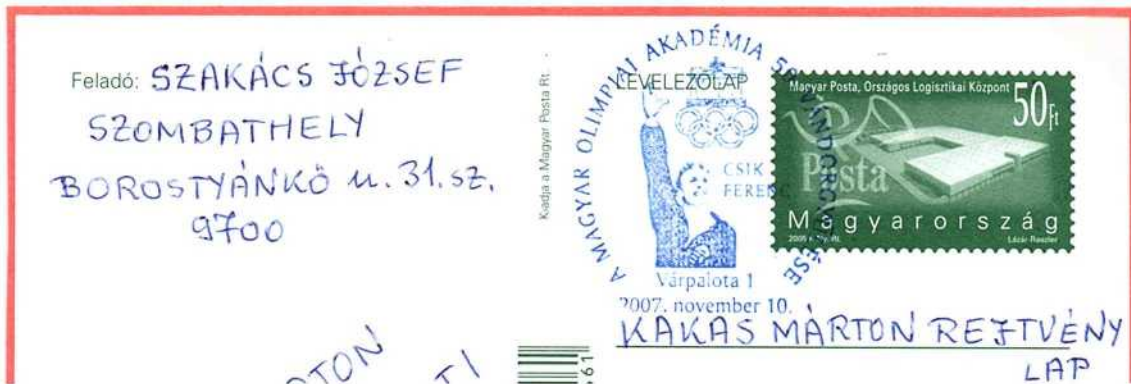 Feladó: SZAKÁCS JÓZSEF
SZOMBATHELY
BOROSTYÁNKŐ u. 31. sz.
9700
Kiadja a Magyar Posta Rt.
LEVELEZŐLAP
A MAGYAR OLIMPIAI AKADÉMIA VÁNDORGYŰLÉSE
CSIK
FERENC
Várpalota 1
2007. november 10.
Magyar Posta, Országos Logisztikai Központ
50 Ft
Posta
Magyarország
KAKAS MÁRTON REJTVÉNY
LAP
61